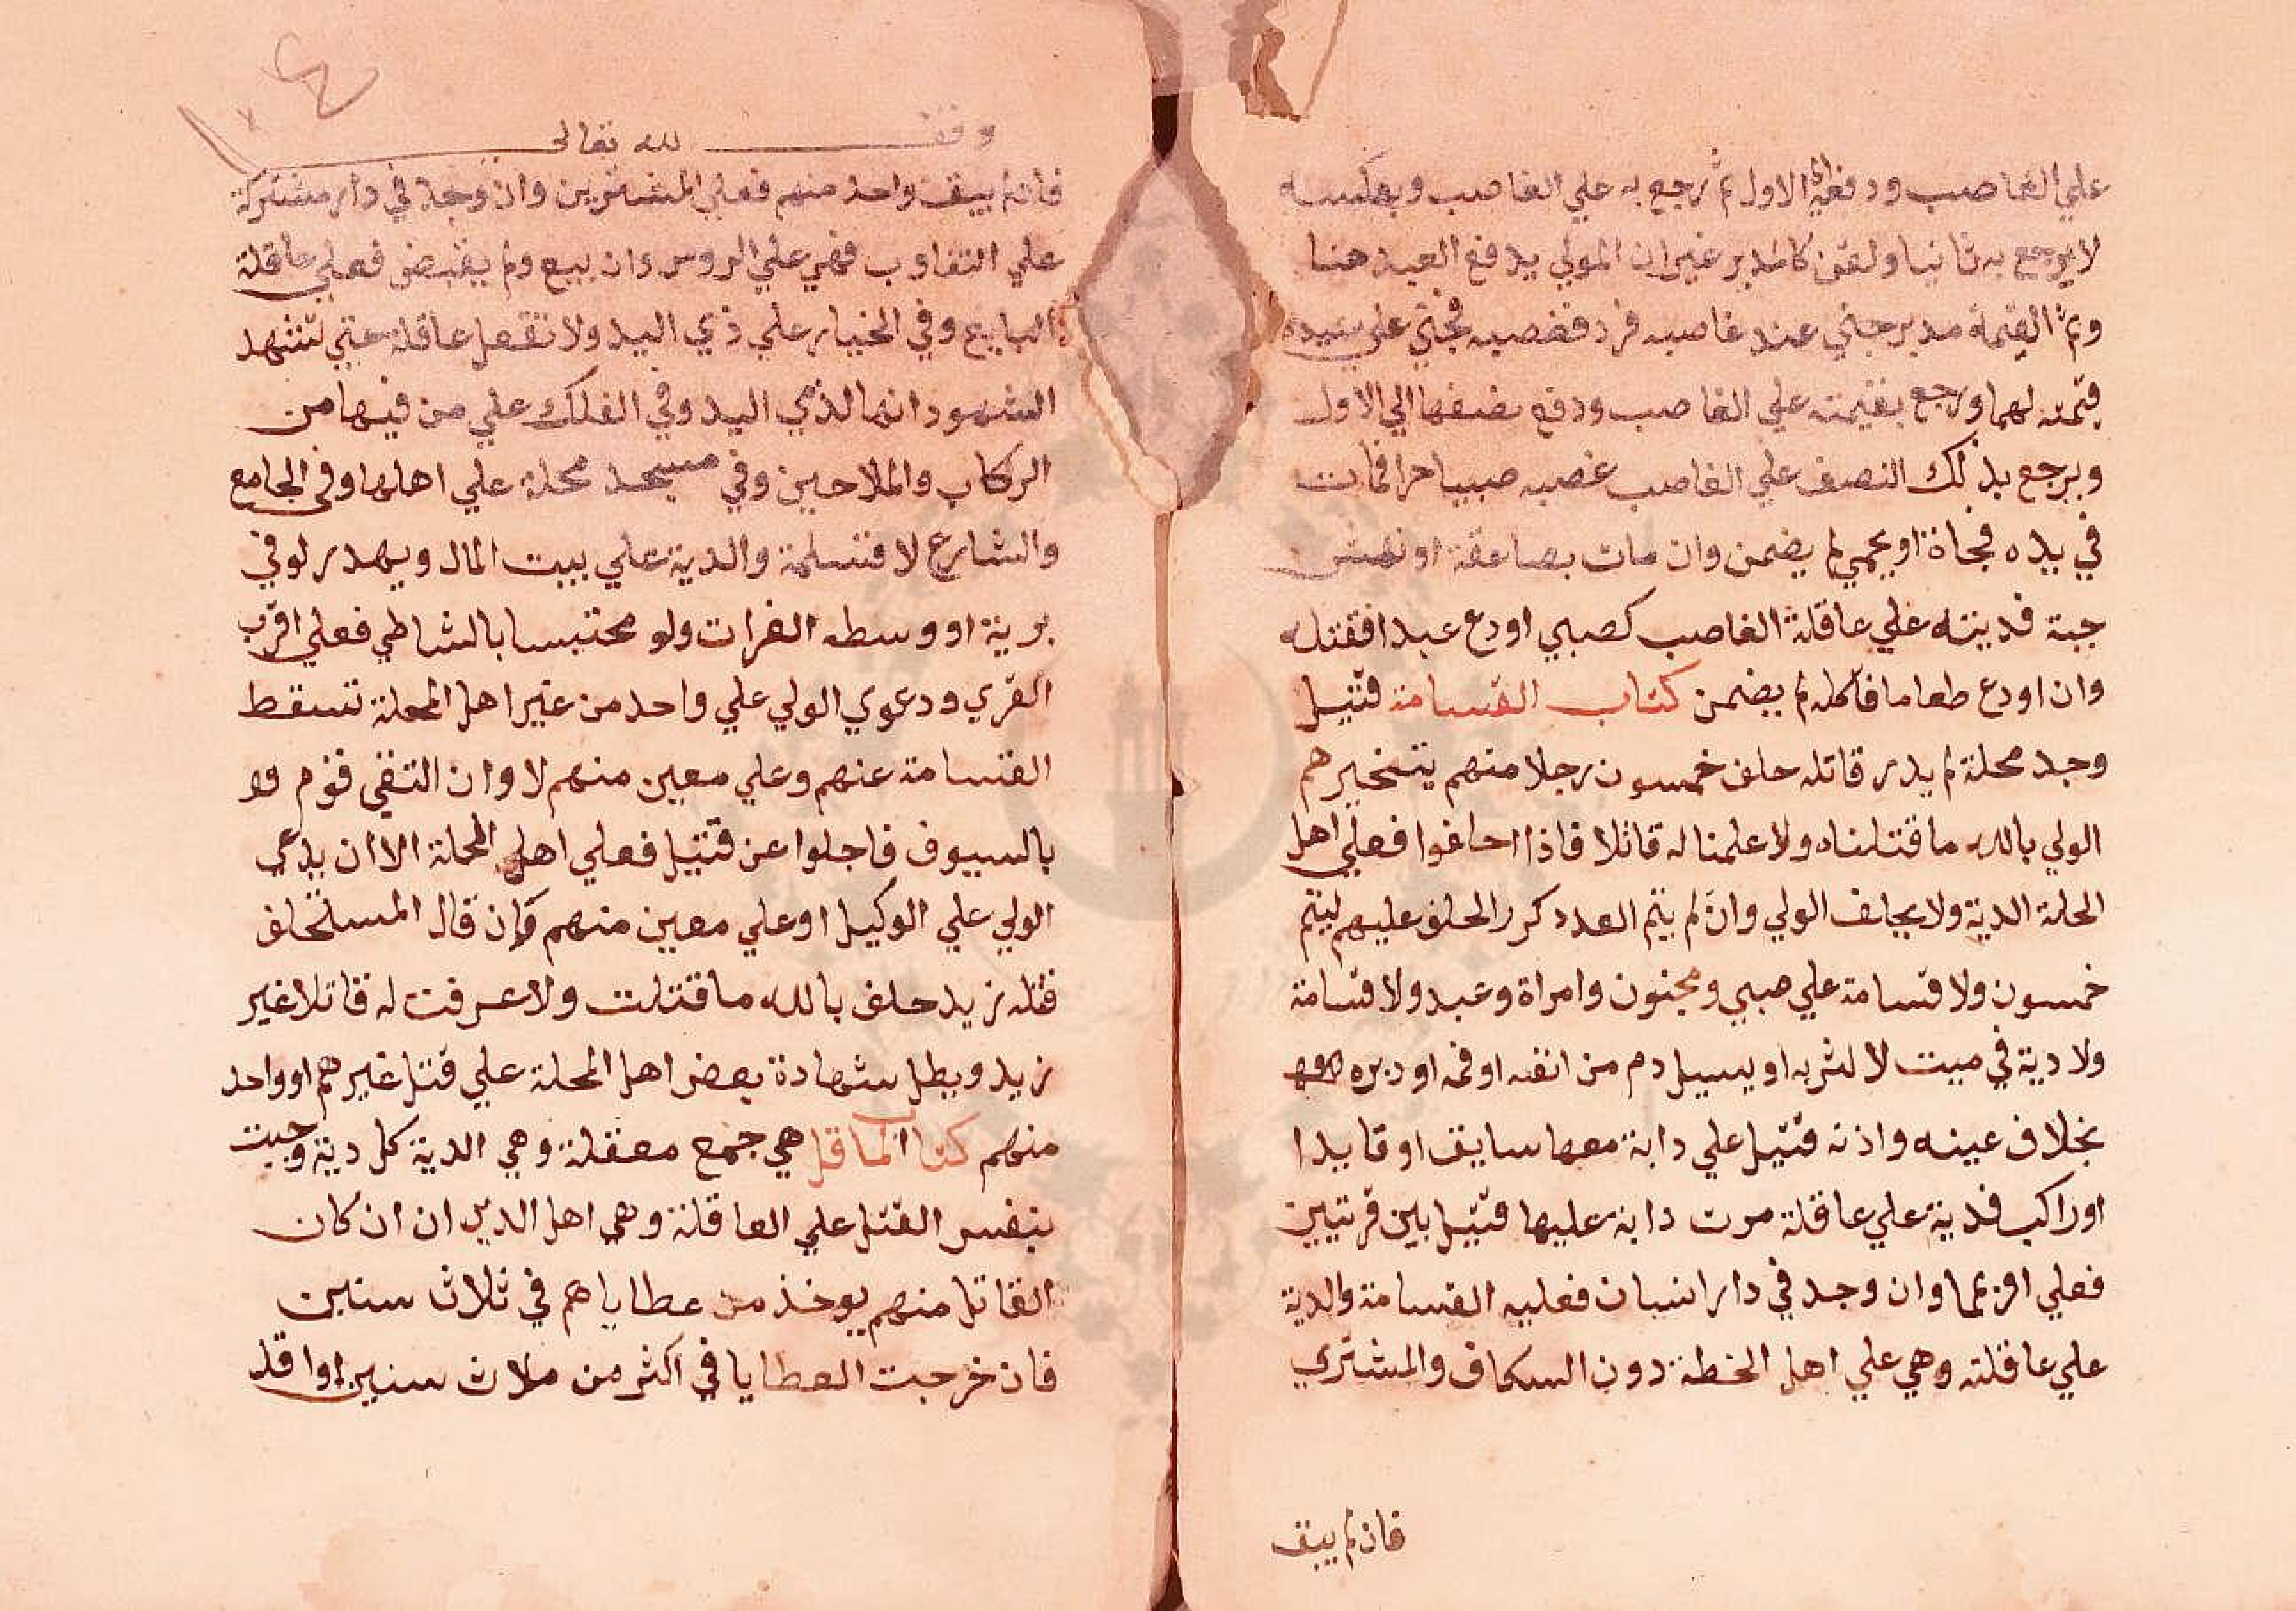 علي الغاصب ودفعها الي الاول ثم رجع به علي الغاصب وبعكسه
لا يرجع به ثانيا والقن كالمدبر غير ان المولي يدفع العبد هنا
وثم القيمة مدبر جني عند غاصبه فرد فغصبه فجني علي سيده
قيمته لهما ورجع بقيمته علي الغاصب ودفع نصفها الي الاول
ويرجع بذلك النصف علي الغاصب غصب صبيا حرا فمات
في يده فجاة او بحمي لم يضمن وان مات بصاعقة او نهش
حية فديته علي عاقلة الغاصب كصبي اودع عبدا فقتله
وان اودع طعاما فاكله لم يضمن كتاب القسامة قتيل
وجد محلة لم يدر قاتله حلف خمسون رجلا منهم يتخيرهم
الولي بالله ما قتلناه ولا علمنا له قاتلا فاذا حلفوا فعلي اهل
المحلة الدية ولا يحلف الولي وان لم يتم العدد كرر الحلف عليهم ليتم
خمسون ولا قسامة علي صبي ومجنون وامراة وعبد ولا قسامة
ولا دية في ميت لا اثر به او يسيل دم من انفه او فمه او دبره
بخلاف عينه واذنه قتيل علي دابة معها سايق او قايدا
او راكب فدية علي عاقلة مرت دابة عليها قتيل بين قريتين
فعلي اقربهما وان وجد في دار انسان فعليه القسامة والدية
علي عاقلته وهي علي اهل الخطة دون السكاف والمشتري
فان لم يبق
وقف لله تعالى
فان لم يبق واحد منهم فعلي المشترين وان وجد في دار مشتركة
علي التفاوت فهي علي الروس وان بيع ولم يقبض فعلي عاقلة
البايع وفي الخيار علي ذي اليد ولا تعقل عاقلة حتي تشهد
الشهود انها لذي اليد وفي الفلك علي من فيها من
الركاب والملاحين وفي مسجد محلة علي اهلها وفي الجامع
والشارع لا قسامة والدية علي بيت المال ويهدر لو في
برية او وسط الفرات ولو محتبسا بالشاطي فعلي اقرب
القري ودعوي الولي علي واحد من غير اهل المحلة تسقط
القسامة عنهم وعلي معين منهم لا وان التقي قوم
بالسيوف فاجلوا عن قتيل فعلي اهل المحلة الا ان يدعي
الولي علي الوكيل او علي معين منهم وان قال المستحلف
قتله زيد حلف بالله ما قتلت ولا عرفت له قاتلا غير
زيد وبطل شهادة بعض اهل المحلة علي قتل غيرهم او واحد
منهم كتاب المعاقل هي جمع معقلة وهي الدية كل دية وجبت
بنفس القتل علي العاقلة وهي اهل الديوان ان كان
القاتل منهم يوخذ من عطاياهم في ثلاث سنين
فان خرجت العطايا في اكثر من ثلاث سنين او اقل